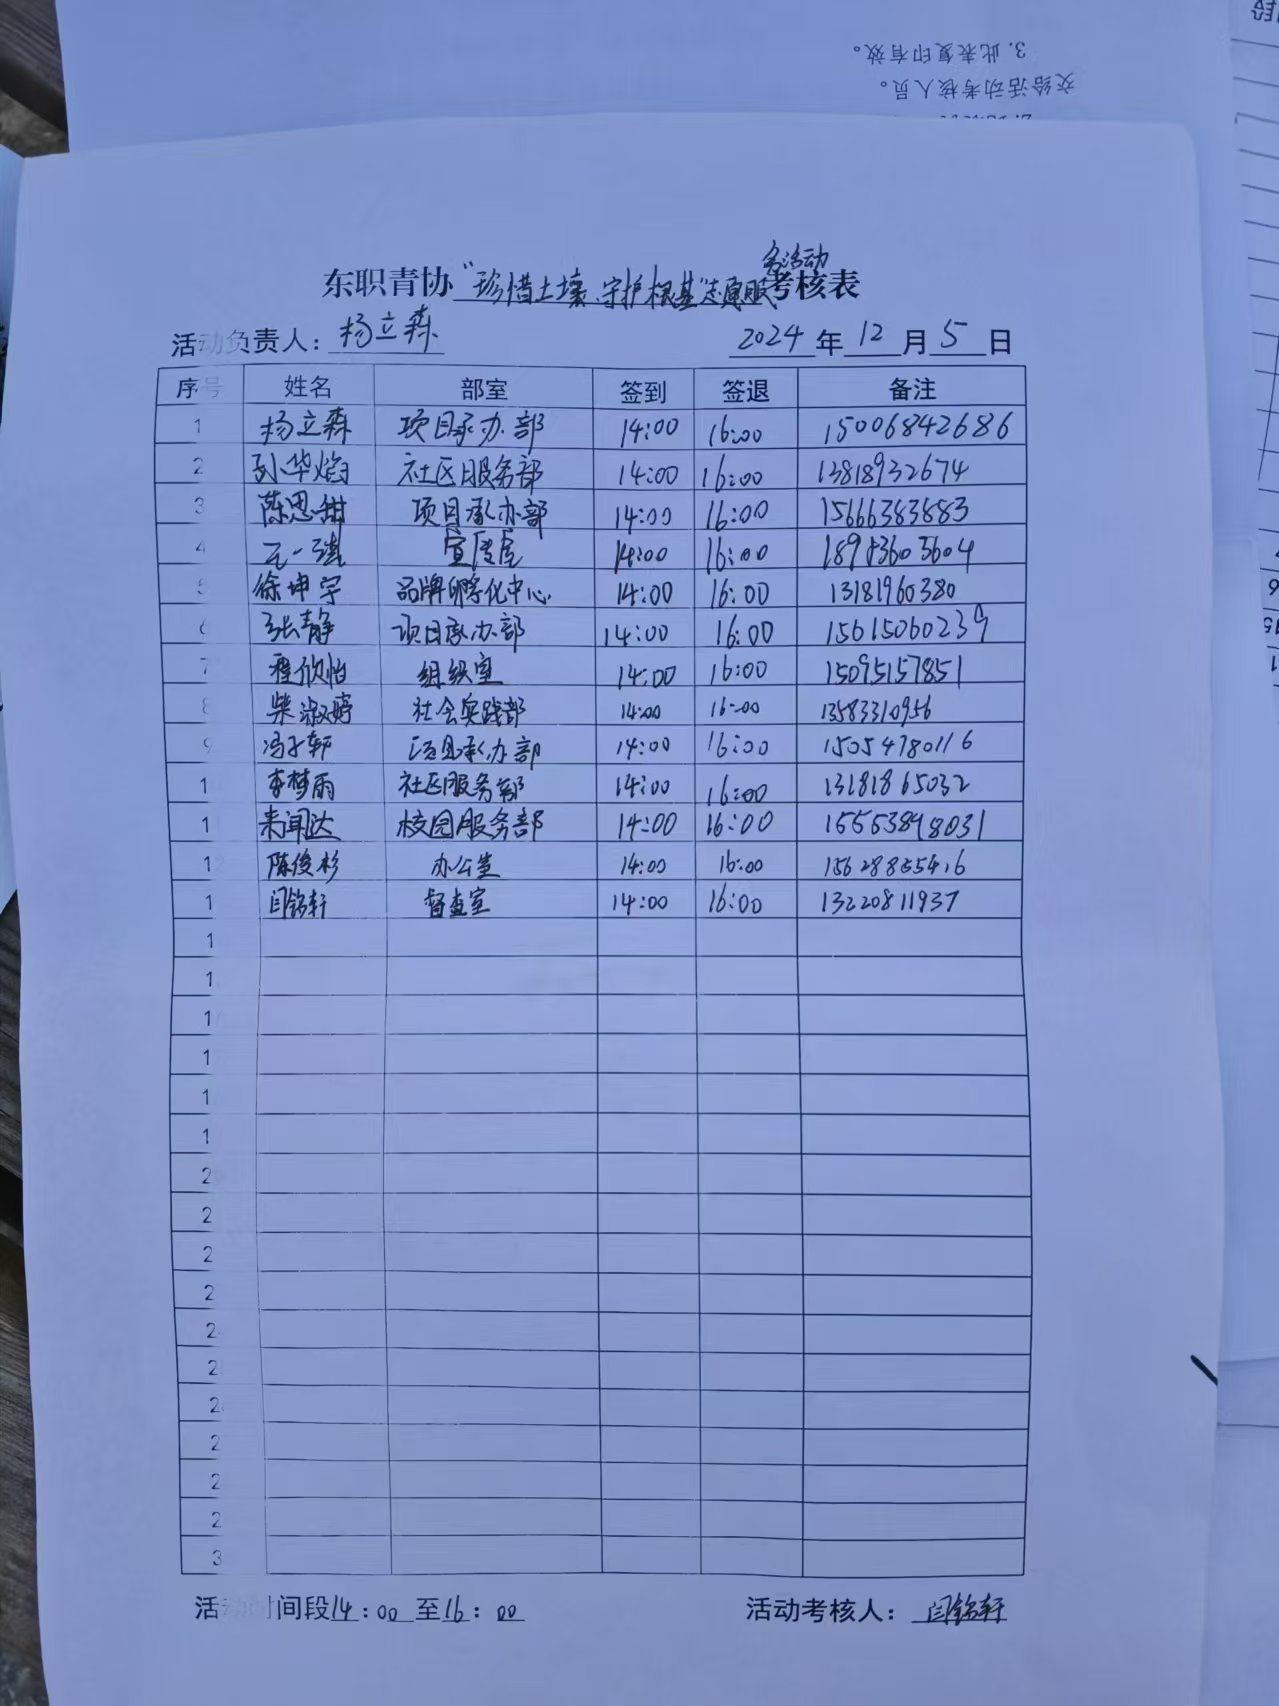 3. 此表复印有效。
交给活动考核人员。
东职青协“珍惜土壤、守护根基”志愿服务活动考核表
活动负责人：杨立森 2024年12月5日
序号 姓名 部室 签到 签退 备注
1 杨立森 项目承办部 14:00 16:00 15006842686
2 孙华焰 社区服务部 14:00 16:00 13818932674
3 陈思甜 项目承办部 14:00 16:00 15666383683
4 14:00 16:00
5 徐坤宇 品牌孵化中心 14:00 16:00 13181960380
6 张静 项目承办部 14:00 16:00 15615060239
7 程欣怡 组织室 14:00 16:00 15095157851
8 柴淑婷 社会实践部 14:00 16:00 13583310956
9 冯子轩 项目承办部 14:00 16:00 15054780116
1 李梦雨 社区服务部 14:00 16:00 13181865032
1 校园服务部 14:00 16:00 15553898031
12 陈俊杉 办公室 14:00 16:00
1 闫铭轩 督查室 14:00 16:00 13220811937
1
1
1
1
1
1
2
2
2
2
2
2
2
2
2
2
3
活动时间段14:00至16:00 活动考核人：闫铭轩